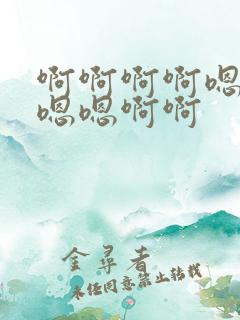 啊啊啊啊嗯
嗯嗯啊啊
金尋者
未经同意禁止转载